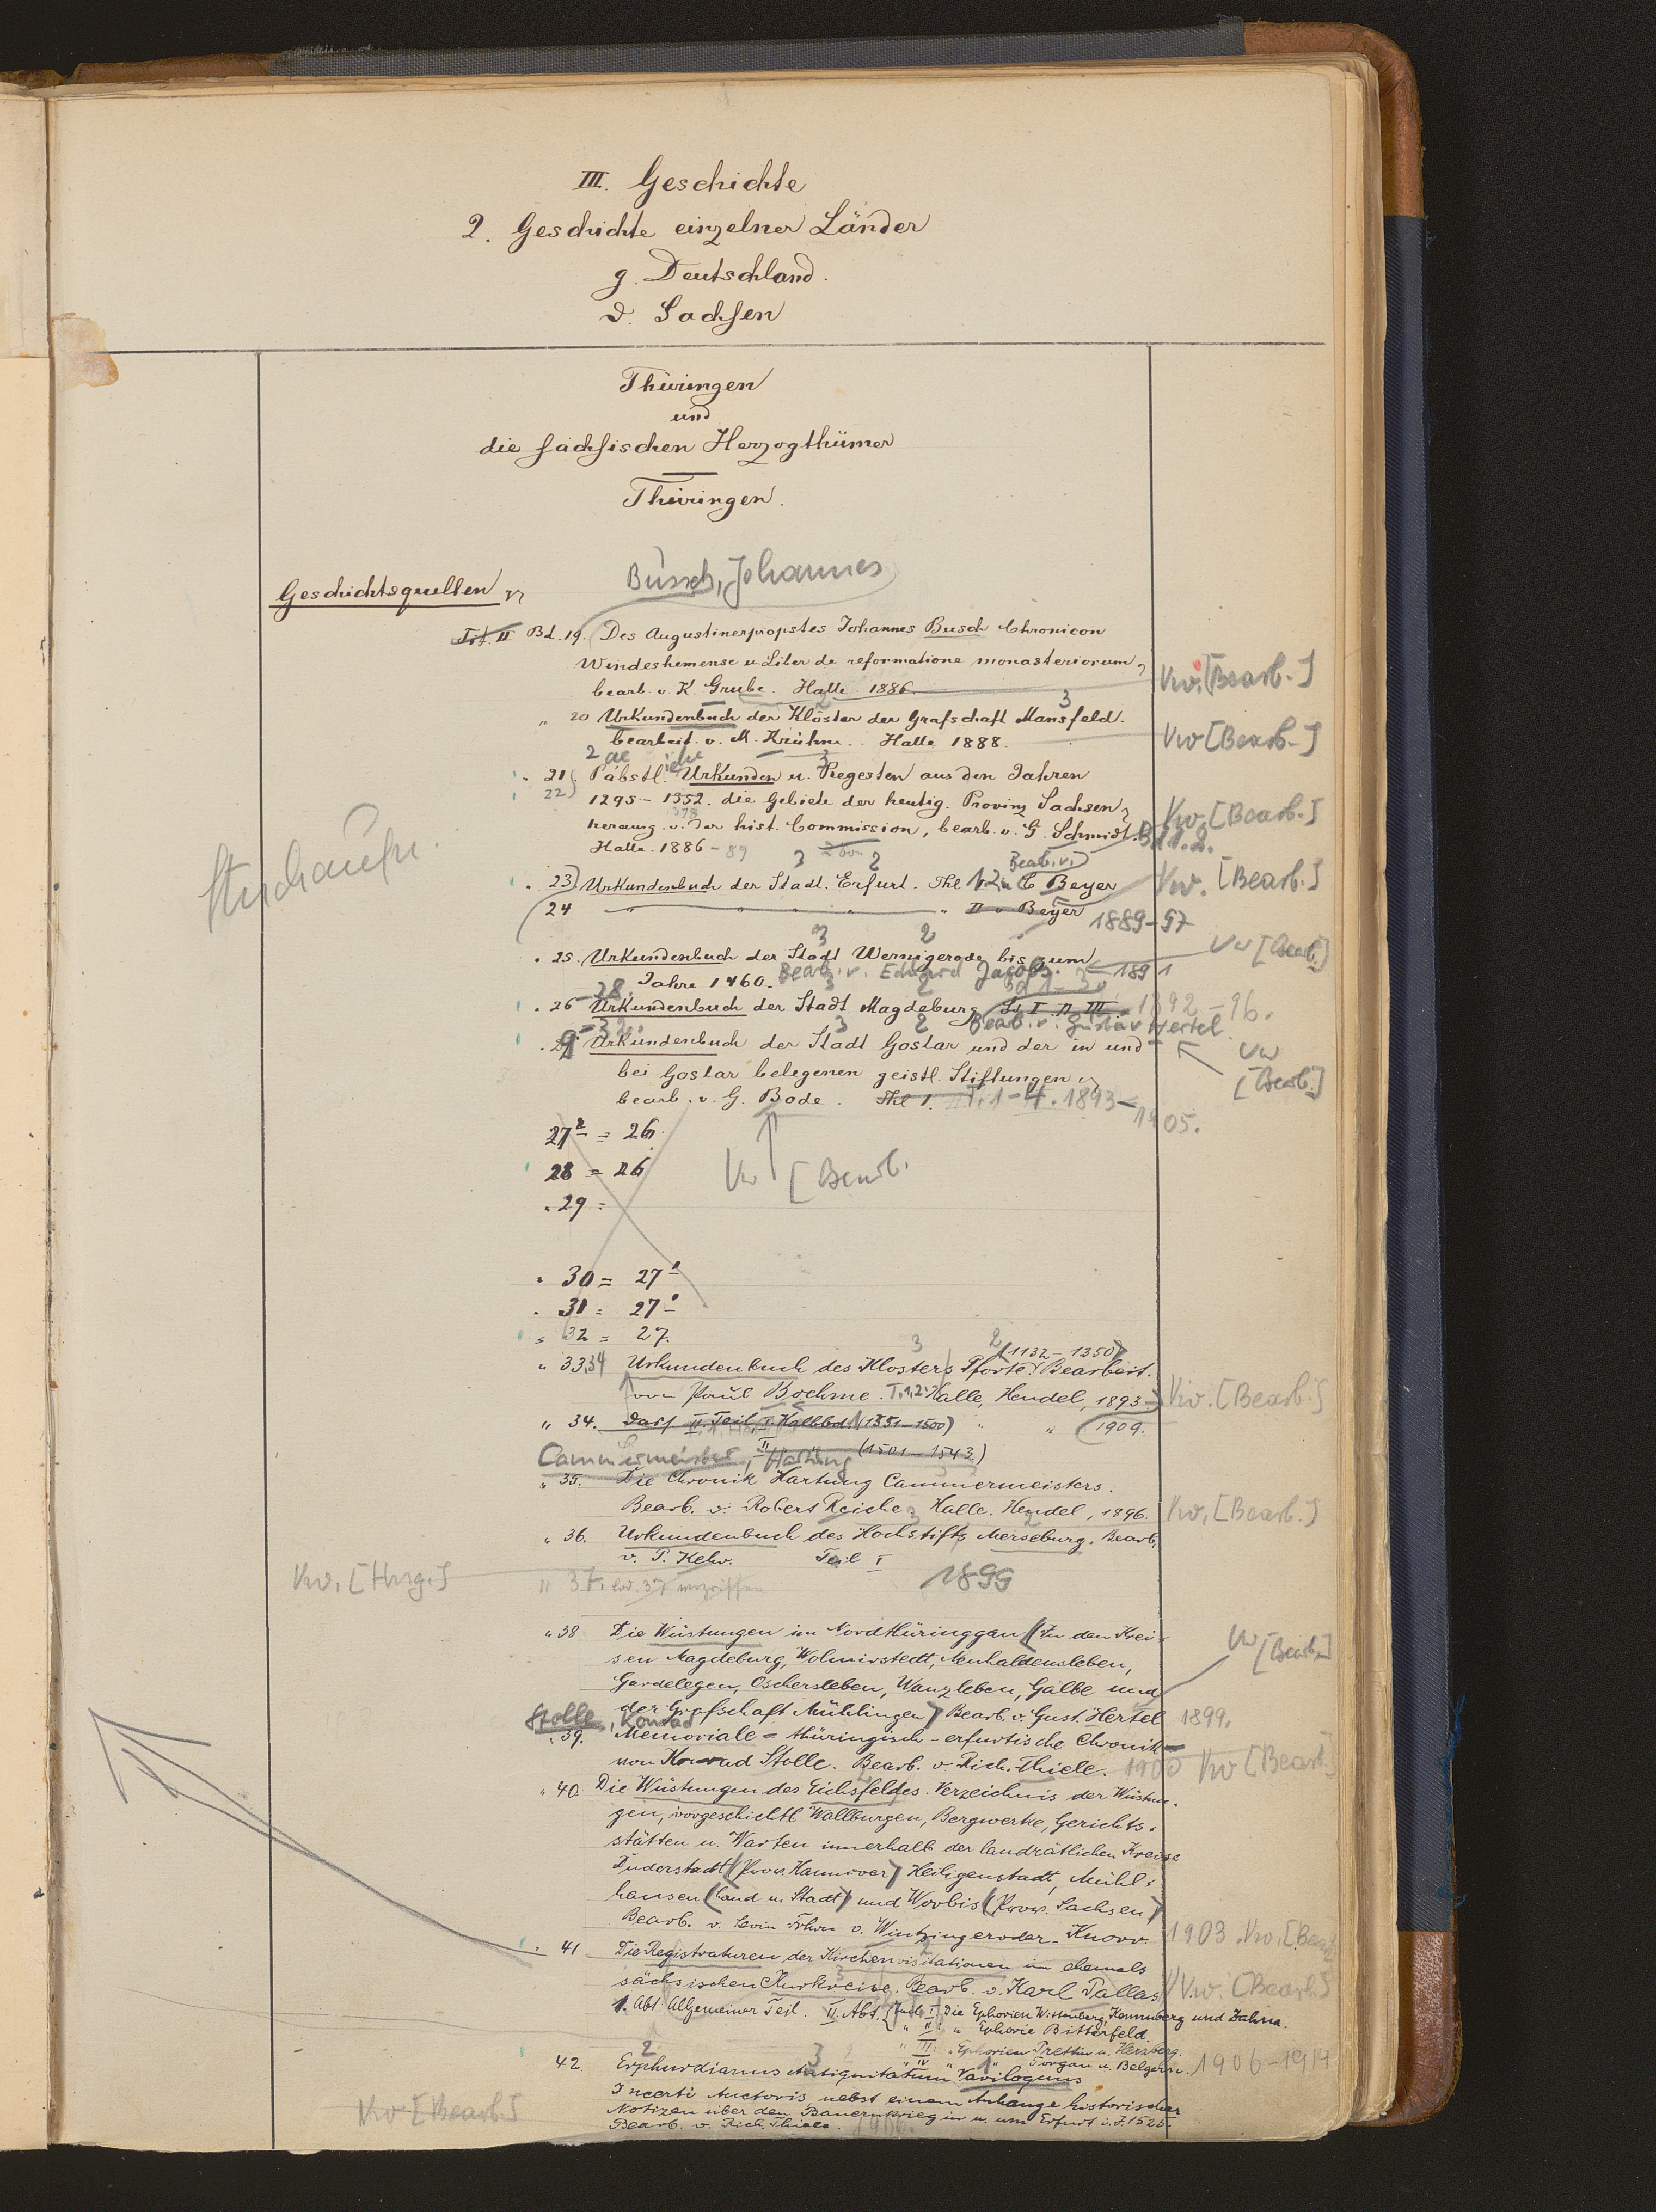 III. Geschichte
2. Geschichte einzelner Länder
g. Deutschland.
d. Sachsen
Thüringen
und
die sächsischen Herzogthümer
Thüringen.
Busch, Johannes
Geschichtsquellen
Bd. 19. Des Augustinerpropstes Johannes Busch Chronicon
Windeshemense u. Liber de reformatione monasteriorum,
bearb. v. K. Grube. Halle. 1886.
Vw. [Bearb.]
" 20 Urkundenbuch der Klöster der Grafschaft Mansfeld.
bearbeit. v. M. Krühne. Halle 1888.
Vw [Bearb.]
" 21. Päbstl. Urkunden u. Regesten aus den Jahren
22)
1295 - 1352. die Gebiete der heutig. Provinz Sachsen
1378
herausg. v. der hist. Commission, bearb. v. G. Schmidt. Bd 1.2.
Halle. 1886 - 89
Vw. [Bearb.]
" 23) Urkundenbuch der Stadt. Erfurt. Thl 1.2. Bearb. v. C Beyer
Vw. [Bearb.]
24 " " " " " II v Beyer 1889-97
" 25. Urkundenbuch der Stadt Wernigerode bis zum
Jahre 1460. Bearb. v. Eduard Jacobs. 1891
Vw [Bearb.]
" 26 - 28. Urkundenbuch der Stadt Magdeburg Bd 1-3 I II III 1892-96.
Bearb. v. Gustav Hertel
Vw [Bearb.]
Urkundenbuch der Stadt Goslar und der in und
bei Goslar belegenen geistl. Stiftungen
bearb. v. G. Bode. Thl I. T. 1-4. 1893-
1905.
= 26
28 = 26
Vw [Bearb.
" 29 =
" 30 = 27
" 31 = 27
" 32 = 27.
(1132 - 1350)
" 33.34 Urkundenbuch des Klosters Pforte. Bearbeit.
von Paul Boehme. I, 1,2. Halle, Hendel, 1893.
Vw. [Bearb.]
" 34. Dass II. Teil, I. Halbbd. (1351-1500) " " 1909.
II (1501 - 1543)
Cammermeister, Hartung
" 35. Die Chronik Hartung Cammermeisters.
Bearb. v. Robert Reiche. Halle. Hendel, 1896.
Vw. [Bearb.]
" 36. Urkundenbuch des Hochstifts Merseburg. Bearb.
v. P. Kehr. Teil I
1899
Vw. [Hrsg.]
" 37. Bd. 37 vergriffen
" 38 Die Wüstungen im Nordthüringgau (In den Krei-
sen Magdeburg, Wolmirstedt, Neuhaldensleben,
Gardelegen, Oschersleben, Wanzleben, Calbe und
der Grafschaft Mühlingen) Bearb. v. Gust. Hertel 1899.
Vw [Bearb.]
Stolle, Konrad
" 39. Memoriale = thüringisch-erfurtische Chronik =
von Konrad Stolle. Bearb. v. Rich. Thiele. 1900 Vw [Bearb.]
" 40 Die Wüstungen des Eichsfeldes. Verzeichnis der Wüstun-
gen, vorgeschichtl Wallburgen, Bergwerke, Gerichts-
stätten u. Warten innerhalb der landrätlichen Kreise
Duderstadt (Prov. Hannover) Heiligenstadt, Mühl-
hausen (Land u. Stadt) und Worbis (Prov. Sachsen)
Bearb. v. Levin Frhrn v. Wintzingeroda-Knorr. 1903. Vw. [Bearb.
" 41 Die Registraturen der Kirchenvisitationen im ehemals
sächsischen Kurkreise. Bearb. v. Karl Pallas Vw. [Bearb.]
1. Abt. Allgemeiner Teil. II. Abt. I Die Ephorien Wittenberg, Kemberg und Zahna.
" II: " Ephorie Bitterfeld.
" III: Ephorien Prettin u. Herzberg.
" IV " Torgau u. Belgern. 1906-1914
42. Erphurdianus Antiquitatum Variloquus
Incerti Auctoris nebst einem Anhange historischer
Notizen über den Bauernkrieg in u. um Erfurt i. J. 1525.
Bearb. v. Rich. Thiele. 1906.
Vw [Bearb.]